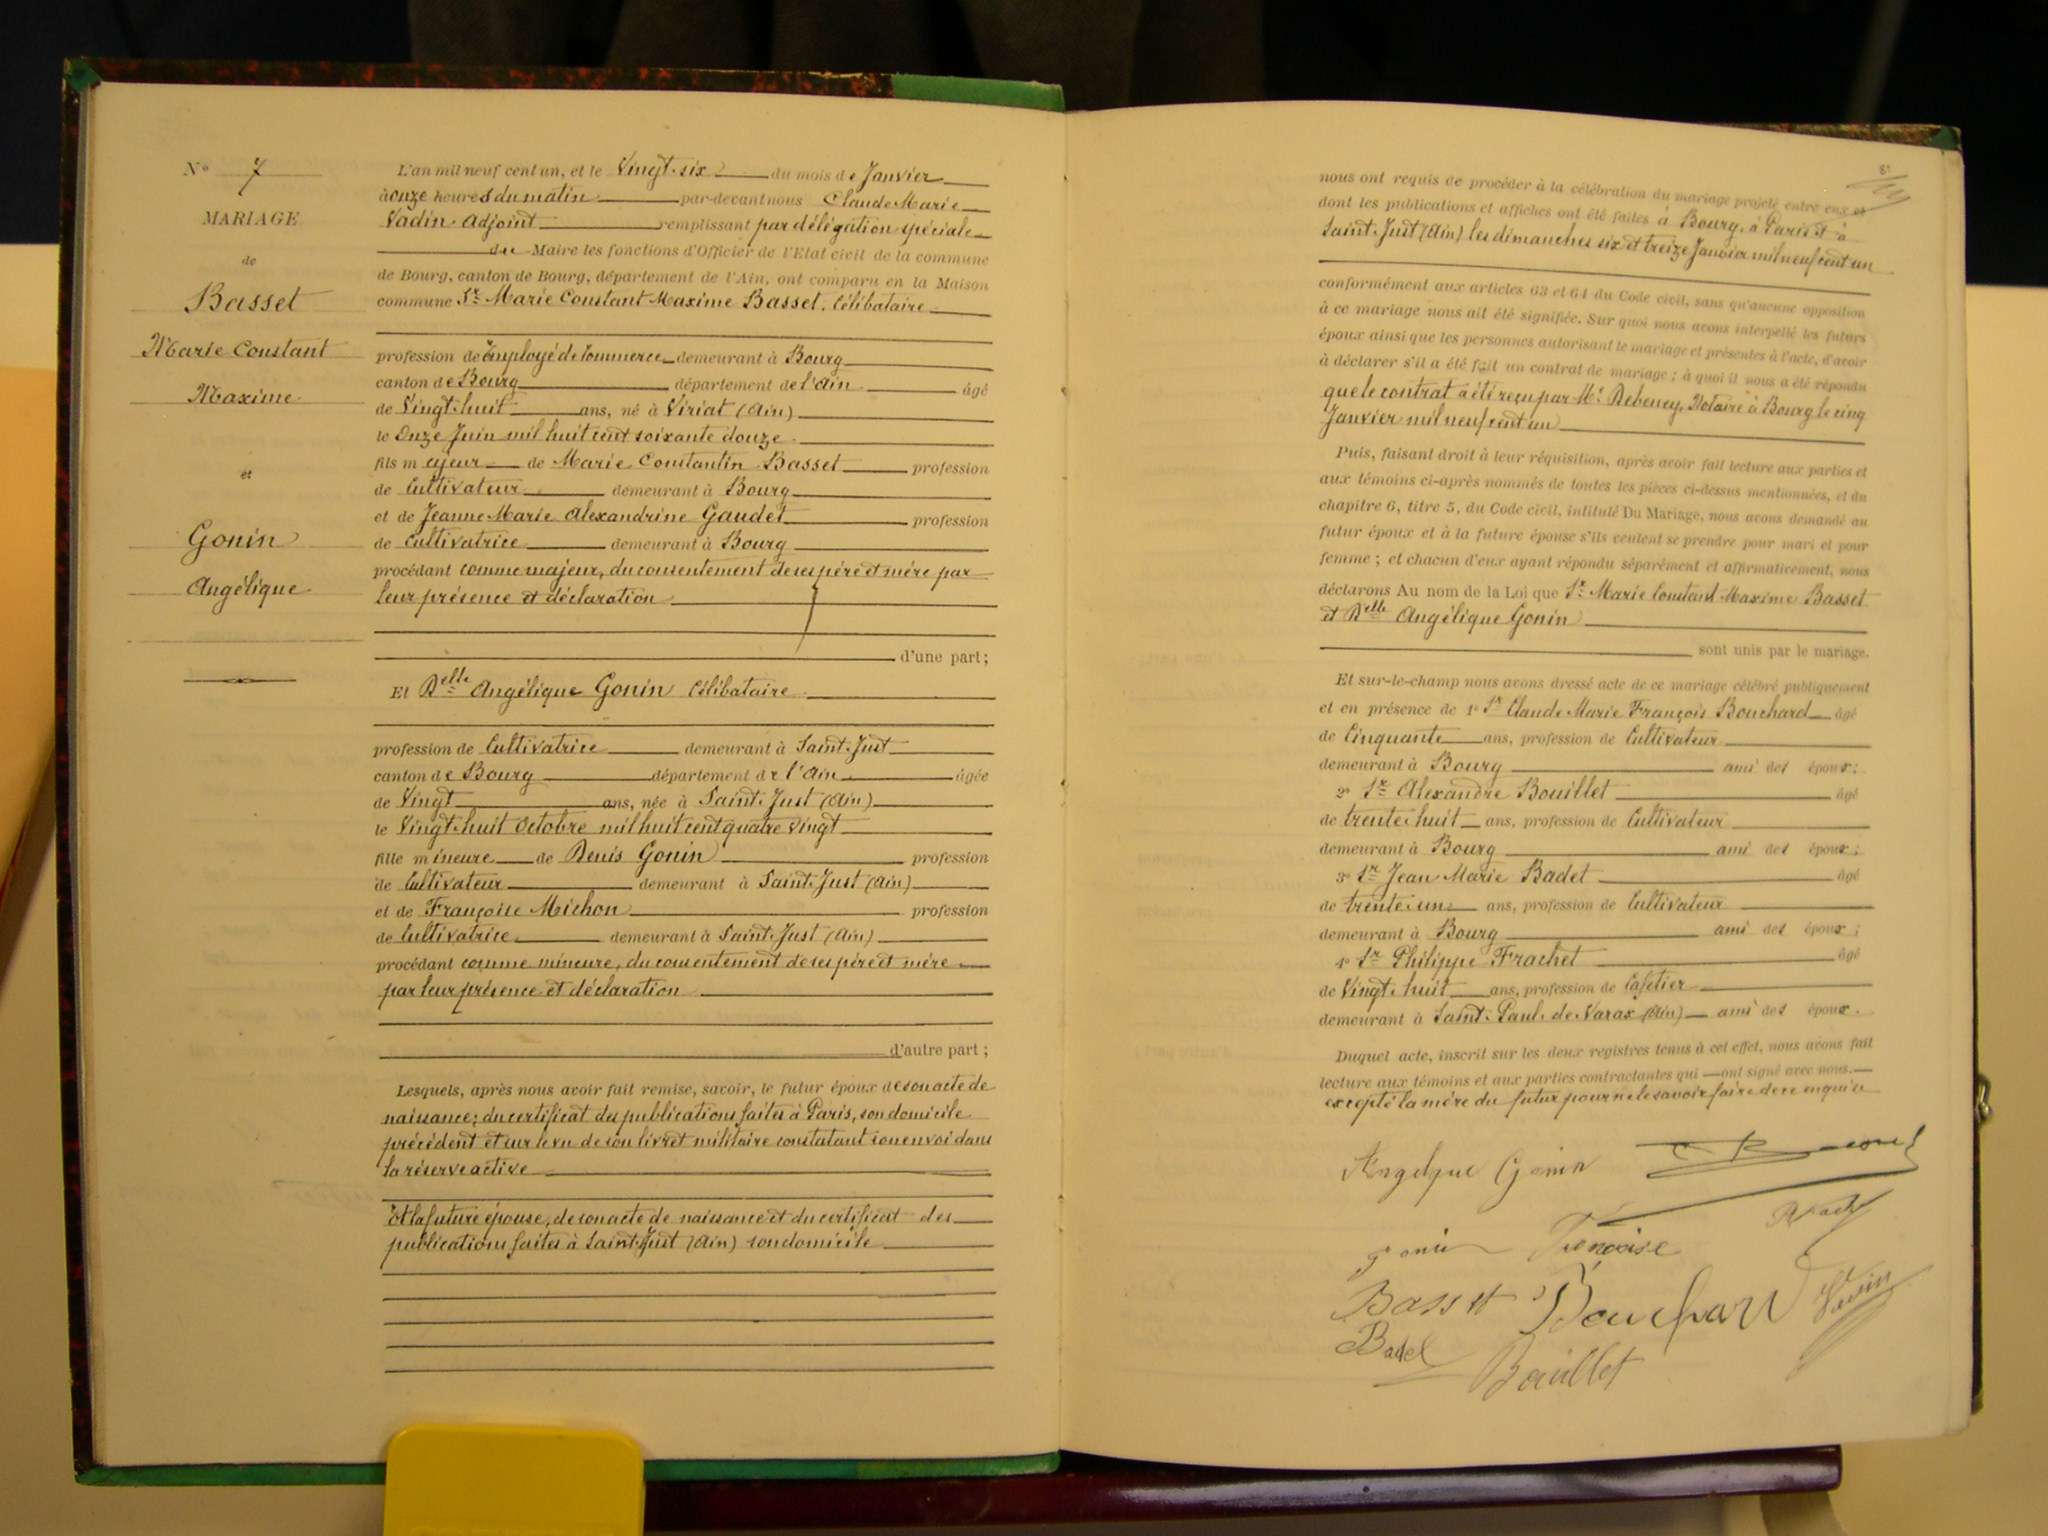 N° 7
MARIAGE
de
Basset
Marie Constant
Maxime
et
Gonin
Angélique
L'an mil neuf cent un, et le Vingt-six du mois de Janvier
à onze heures du matin par-devant nous Claude Marie
Vadin Adjoint remplissant par délégation spéciale
du Maire les fonctions d'Officier de l'Etat civil de la commune
de Bourg, canton de Bourg, département de l'Ain, ont comparu en la Maison
commune Sr Marie Constant Maxime Basset, Célibataire
profession de Employé de Commerce demeurant à Bourg
canton de Bourg département de l'Ain âgé
de Vingt-huit ans, né à Viriat (Ain)
le Onze Juin mil huit cent soixante douze
fils majeur de Marie Constantin Basset profession
de Cultivateur demeurant à Bourg
et de Jeanne Marie Alexandrine Gaudet profession
de Cultivatrice demeurant à Bourg
procédant comme majeur, du consentement de ses père et mère par
leur présence et déclaration
d'une part;
Et Delle Angélique Gonin Célibataire
profession de Cultivatrice demeurant à Saint-Just
canton de Bourg département de l'Ain âgée
de Vingt ans, née à Saint-Just (Ain)
le Vingt-huit Octobre mil huit cent quatre vingt
fille mineure de Denis Gonin profession
de Cultivateur demeurant à Saint-Just (Ain)
et de Françoise Michon profession
de Cultivatrice demeurant à Saint-Just (Ain)
procédant comme mineure, du consentement de ses père et mère
par leur présence et déclaration
d'autre part;
Lesquels, après nous avoir fait remise, savoir, le futur époux de son acte de
naissance; du certificat des publications faites à Paris, son domicile
précédent et sur le vu de son livret militaire constatant son envoi dans
la réserve active
Et la future épouse, de son acte de naissance et du certificat des
publications faites à Saint-Just (Ain) son domicile
81
nous ont requis de procéder à la célébration du mariage projeté entre eux et
dont les publications et affiches ont été faites à Bourg, à Paris et à
Saint-Just (Ain) les dimanches six et treize Janvier mil neuf cent un
conformément aux articles 63 et 64 du Code civil, sans qu'aucune opposition
à ce mariage nous ait été signifiée. Sur quoi nous avons interpellé les futurs
époux ainsi que les personnes autorisant le mariage et présentes à l'acte, d'avoir
à déclarer s'il a été fait un contrat de mariage; à quoi il nous a été répondu
que le contrat a été reçu par Me Debeney, Notaire à Bourg le cinq
Janvier mil neuf cent un
Puis, faisant droit à leur réquisition, après avoir fait lecture aux parties et
aux témoins ci-après nommés de toutes les pièces ci-dessus mentionnées, et du
chapitre 6, titre 5, du Code civil, intitulé Du Mariage, nous avons demandé au
futur époux et à la future épouse s'ils veulent se prendre pour mari et pour
femme; et chacun d'eux ayant répondu séparément et affirmativement, nous
déclarons Au nom de la Loi que Sr Marie Constant Maxime Basset
et Delle Angélique Gonin
sont unis par le mariage.
Et sur-le-champ nous avons dressé acte de ce mariage célébré publiquement
et en présence de 1° Sr Claude Marie François Bouchard âgé
de Cinquante ans, profession de Cultivateur
demeurant à Bourg ami des époux;
2° Sr Alexandre Bouillet âgé
de trente-huit ans, profession de Cultivateur
demeurant à Bourg ami des époux;
3° Sr Jean Marie Badet âgé
de trente-un ans, profession de Cultivateur
demeurant à Bourg ami des époux;
4° Sr Philippe Frachet âgé
de Vingt-huit ans, profession de Cafetier
demeurant à Saint-Paul-de-Varax (Ain) ami des époux.
Duquel acte, inscrit sur les deux registres tenus à cet effet, nous avons fait
lecture aux témoins et aux parties contractantes qui ont signé avec nous.
excepté la mère du futur pour ne le savoir faire de ce enquise
Angelique Gonin
gonin Françoise
Basset Bouchard Vadin
Badet Bouillet